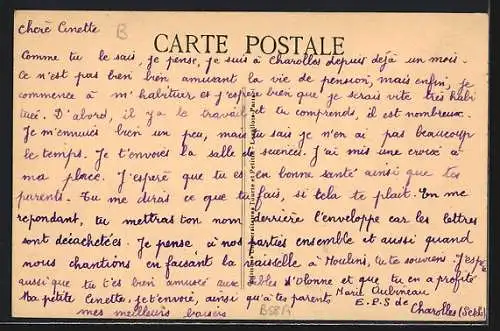 Chère Ginette
B
CARTE POSTALE
Comme tu le sais, je pense, je suis à Charolles depuis déjà un mois.
Ce n'est pas bien bien amusant la vie de pension, mais enfin, je
commence à m'habituer et j'espère bien que je serais vite très habi
tuée. D'abord, il y a le travail et tu comprends, il est nombreux.
Je m'ennuies bien un peu, mais tu sais je n'en ai pas beaucoup
le temps. Je t'envoies la salle de sciences. J'ai mis une croix à
ma place. J'espère que tu es en bonne santé ainsi que tes
parents. Tu me diras ce que tu fais, si cela te plait. En me
repondant, tu mettras ton nom derrière l'enveloppe car les lettres
sont décachetées. Je pense, à nos parties ensemble et aussi quand
nous chantions en faisant la vaisselle à Moulins, tu te souviens. J'espère
aussi que tu t'es bien amusée aux Sables d'Olonne et que tu en a profité
Ma petite Ginette, je t'envoie, ainsi qu'a tes parents
mes meilleurs baisers
Marie Aubineau
E.P.S de
Charolles (S et L)
B58/1